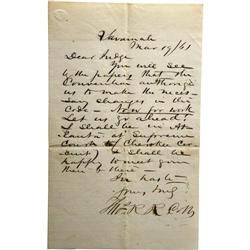 Savannah
Mar 19/61
Dear Judge
You will see
by the papers that the
Convention authorizes
us to make the neces-
sary changes in the
Code - Now for work
Let us go ahead!
I shall be in At-
lanta at Supreme
Court (& Cherokee Cir-
cuit) & I shall be
happy to meet you
then & there -
In haste
Yours truly
Thos R R Cobb